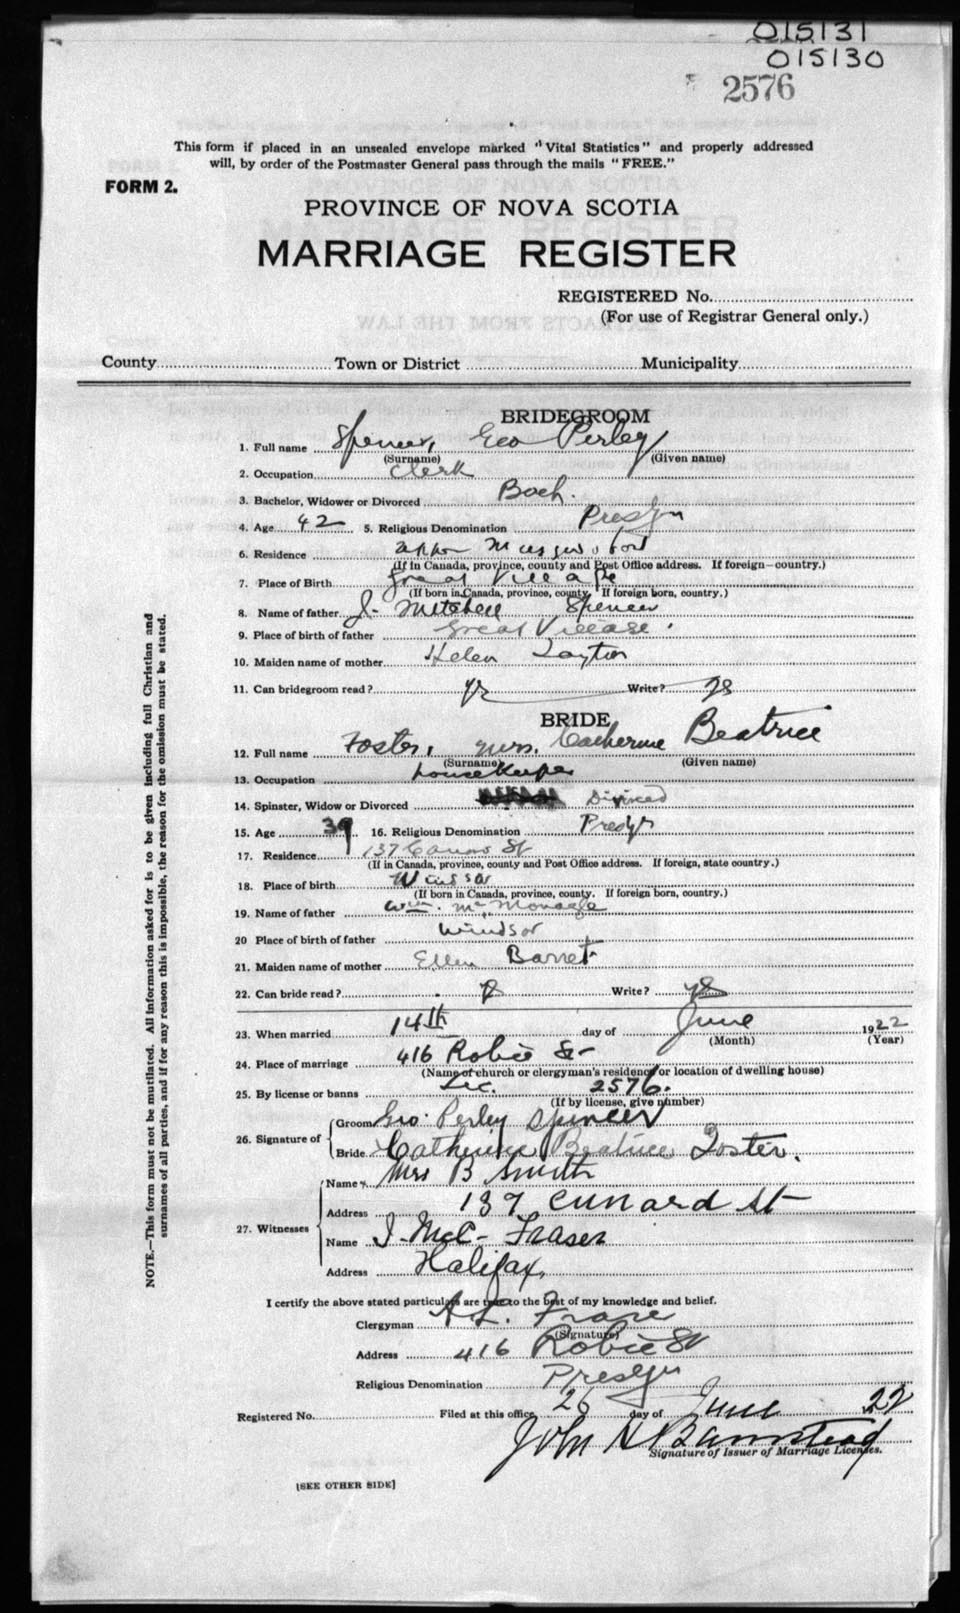 015131
015130
2576
This form if placed in an unsealed envelope marked "Vital Statistics" and properly addressed
will, by order of the Postmaster General pass through the mails "FREE."
FORM 2.
PROVINCE OF NOVA SCOTIA
MARRIAGE REGISTER
REGISTERED No.
(For use of Registrar General only.)
County Town or District Municipality
BRIDEGROOM
1. Full name Spencer, Geo Perley
(Surname) (Given name)
2. Occupation Clerk
3. Bachelor, Widower or Divorced Bach.
4. Age 42 5. Religious Denomination Presbyn
6. Residence Musquodoboit
(If in Canada, province, county and Post Office address. If foreign—country.)
7. Place of Birth Great Village
(If born in Canada, province, county. If foreign born, country.)
8. Name of father J. Mitchell Spencer
9. Place of birth of father Great Village.
10. Maiden name of mother Helen Layton
11. Can bridegroom read? yes Write? yes
BRIDE
12. Full name Foster, Mrs. Catherine Beatrice
(Surname) (Given name)
13. Occupation housekeeper
14. Spinster, Widow or Divorced Divorced
15. Age 39 16. Religious Denomination Presbyn
17. Residence 137 St
(If in Canada, province, county and Post Office address. If foreign, state country.)
18. Place of birth Windsor
(If born in Canada, province, county. If foreign born, country.)
19. Name of father Wm. McMonagle
20 Place of birth of father Windsor
21. Maiden name of mother Ellen Barret
22. Can bride read? Write? yes
23. When married 14th day of June 1922
(Month) (Year)
24. Place of marriage 416 Robie St
(Name of church or clergyman's residence or location of dwelling house)
25. By license or banns Lic. 2576.
(If by license, give number)
26. Signature of Groom Geo. Perley Spencer
Bride Catherine Beatrice Foster.
27. Witnesses Name Mrs B Smith
Address 137 Cunard St
Name J. McC. Fraser
Address Halifax,
I certify the above stated particulars are true to the best of my knowledge and belief.
Clergyman A. L.
(Signature)
Address 416 Robie St
Religious Denomination Presbyn
Registered No. Filed at this office 26 day of June 22
John H Barnstead
Signature of Issuer of Marriage Licenses.
[SEE OTHER SIDE]
NOTE.—This form must not be mutilated. All information asked for is to be given including full Christian and
surnames of all parties, and if for any reason this is impossible, the reason for the omission must be stated.